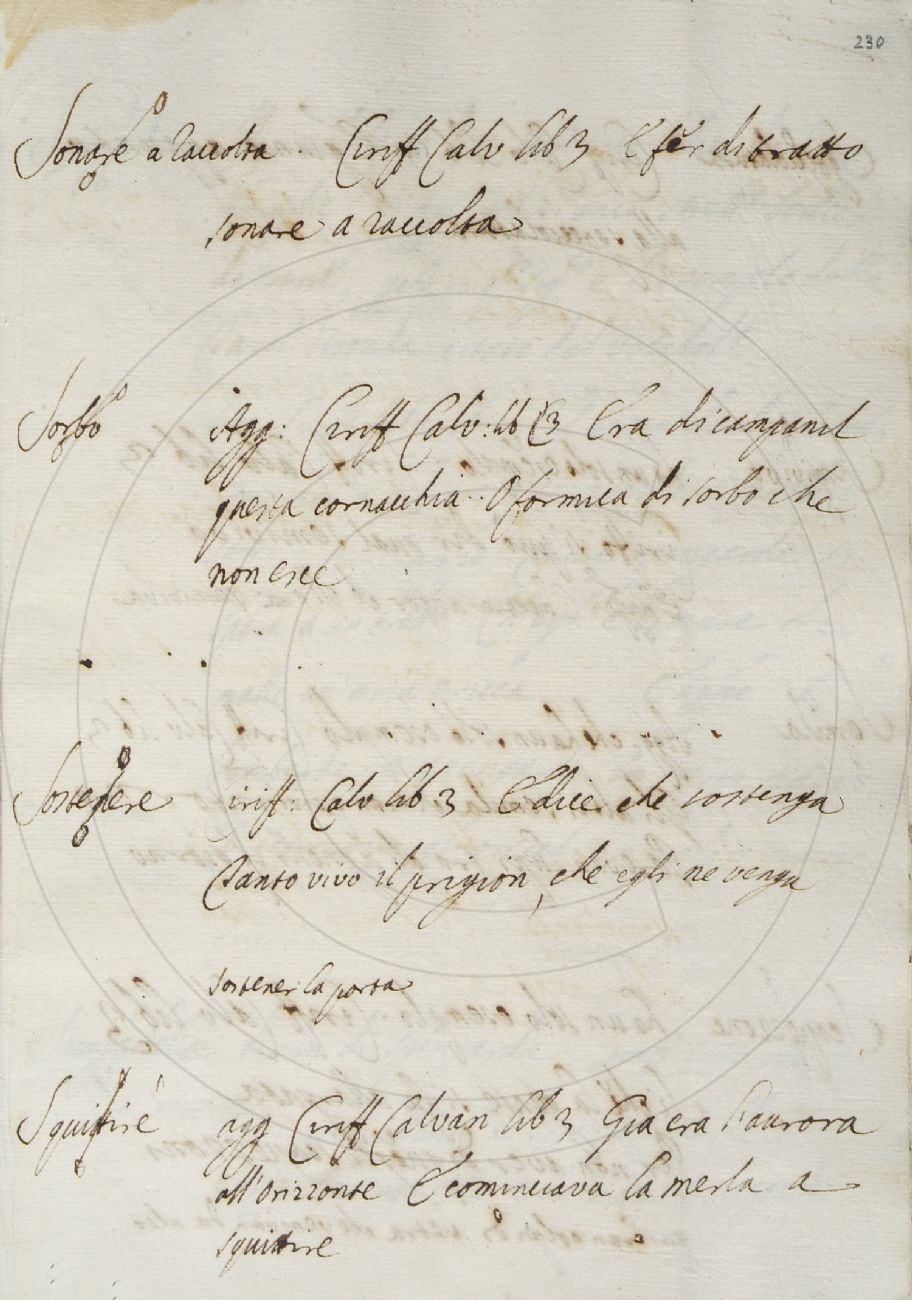 230
Sonare a raccolta. Ciriff Calv lib 3 E fer di tratto
sonare a raccolta
Sorbo Agg: Ciriff Calv: lib 3 Era di campanil
questa cornacchia. O formica di sorbo che
non esce
Sostenere Ciriff: Calv lib 3 E dice che sostenga
Tanto vivo il prigion, che egli ne venga
sostener la porta
Squittire agg Ciriff Calvan lib 3 Gia era l'aurora
all'orizzonte E cominciava la merla a
squittire